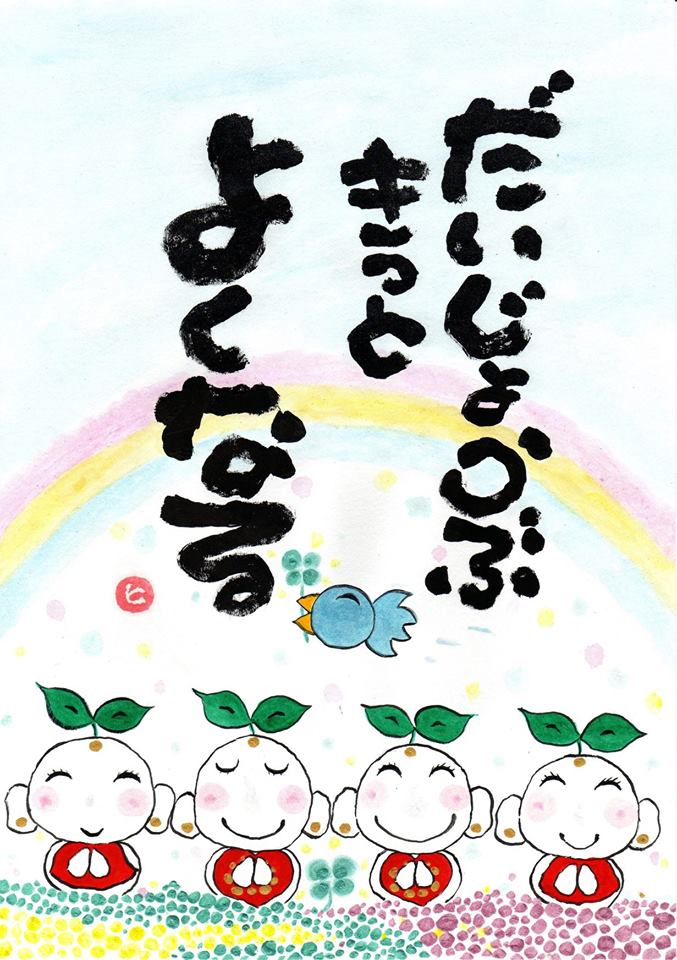 だいじょうぶ
きっと
よくなる
ヒ